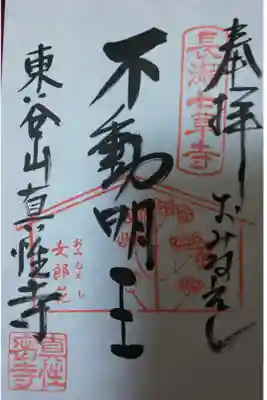 奉拝
長瀞七草寺
おみなえし
不動明王
おみなえし
女郎花
東谷山真性寺
真性密寺